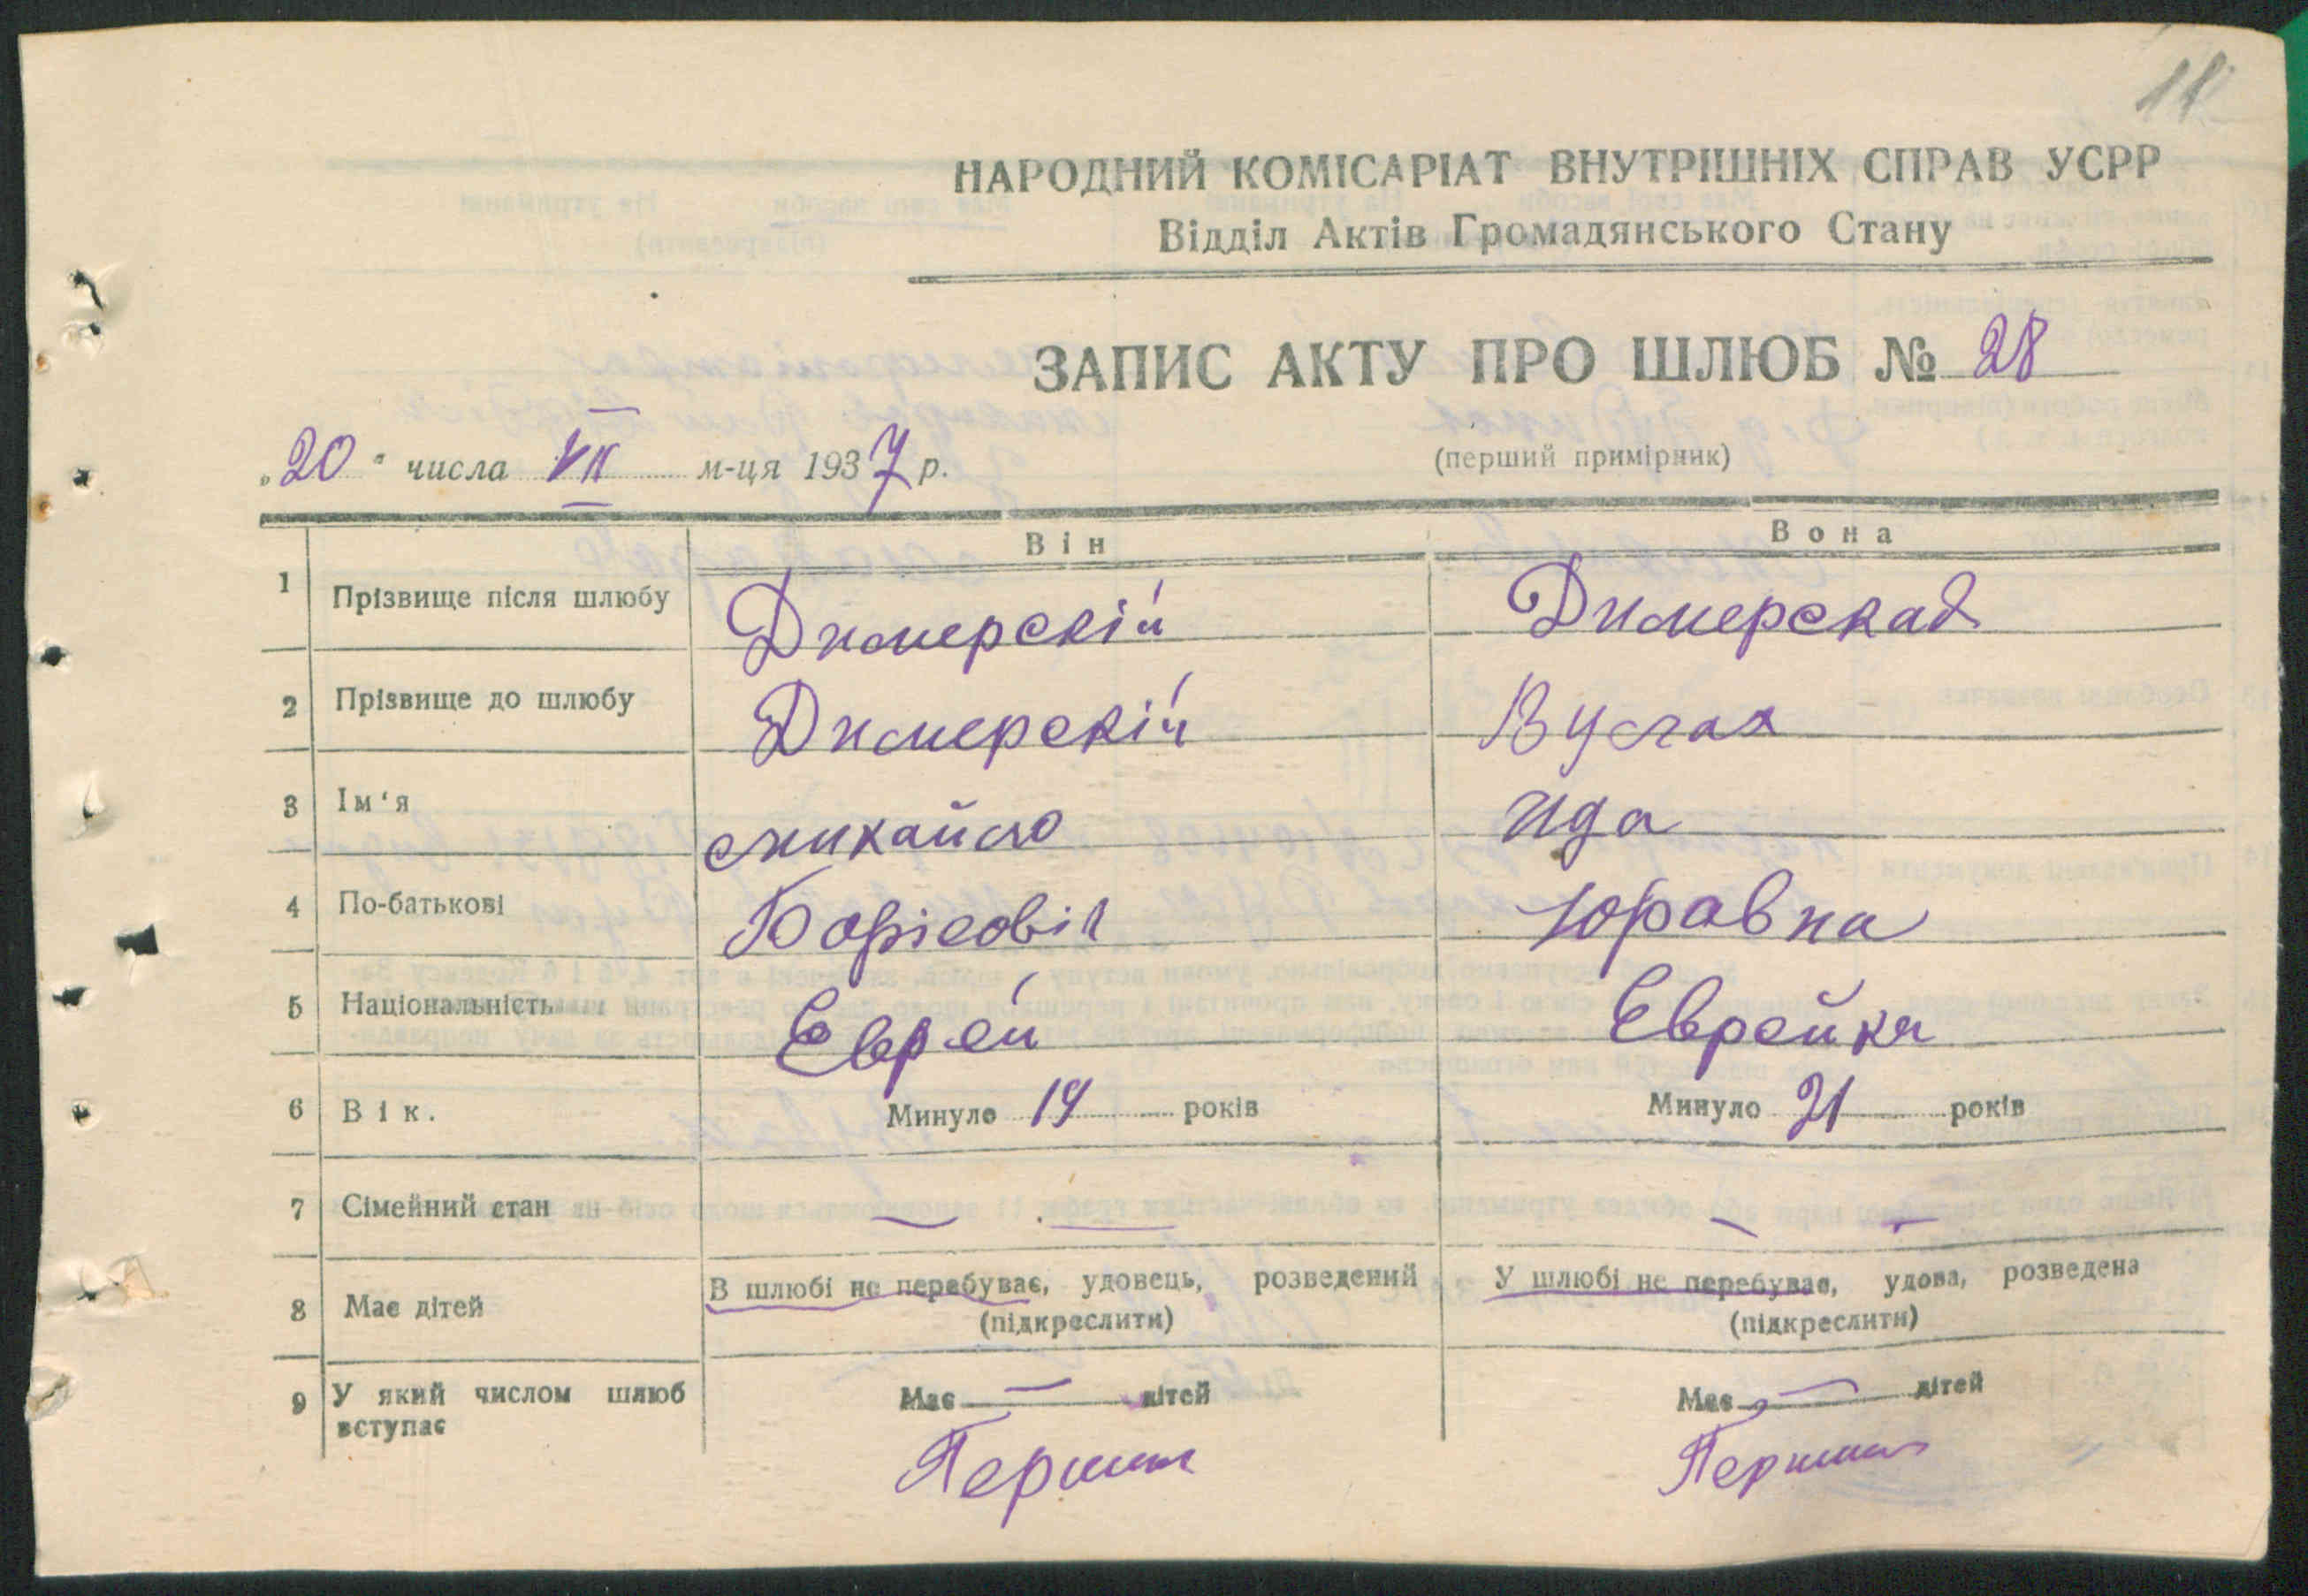 11
НАРОДНИЙ КОМІСАРІАТ ВНУТРІШНІХ СПРАВ УСРР
Відділ Актів Громадянського Стану
ЗАПИС АКТУ ПРО ШЛЮБ № 28
„20“ числа VII м-ця 1937 р.
(перший примірник)
Він Вона
1 Прізвище після шлюбу Димерскій Димерская
2 Прізвище до шлюбу Димерскій
3 Ім‘я Михайло Ида
4 По-батькові Борісовіч Юравна
5 Національність Еврей Еврейка
6 Вік. Минуло 19 років Минуло 21 років
7 Сімейний стан — — — —
8 Має дітей В шлюбі не перебуває, удовець, розведений У шлюбі не перебуває, удова, розведена
(підкреслити) (підкреслити)
9 У який числом шлюб вступає Має — дітей Має — дітей
Перший Перший